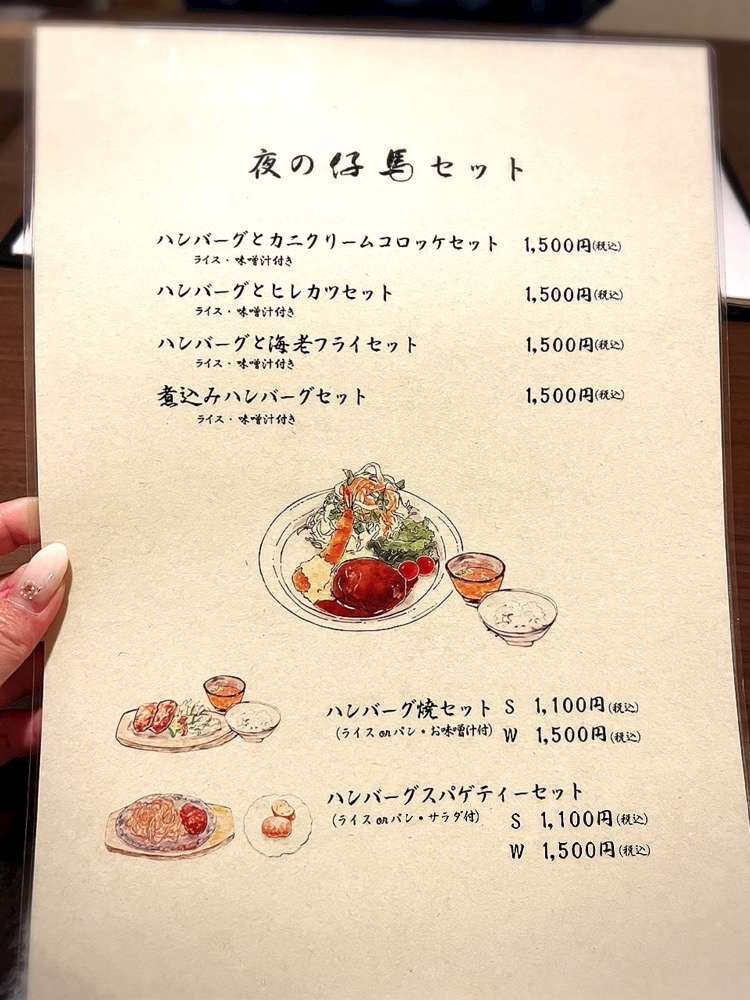 夜の仔馬セット
ハンバーグとカニクリームコロッケセット 1,500円(税込)
ライス・味噌汁付き
ハンバーグとヒレカツセット 1,500円(税込)
ライス・味噌汁付き
ハンバーグと海老フライセット 1,500円(税込)
ライス・味噌汁付き
煮込みハンバーグセット 1,500円(税込)
ライス・味噌汁付き
ハンバーグ焼セット S 1,100円(税込)
(ライスorパン・お味噌汁付) W 1,500円(税込)
ハンバーグスパゲティーセット
(ライスorパン・サラダ付) S 1,100円(税込)
W 1,500円(税込)